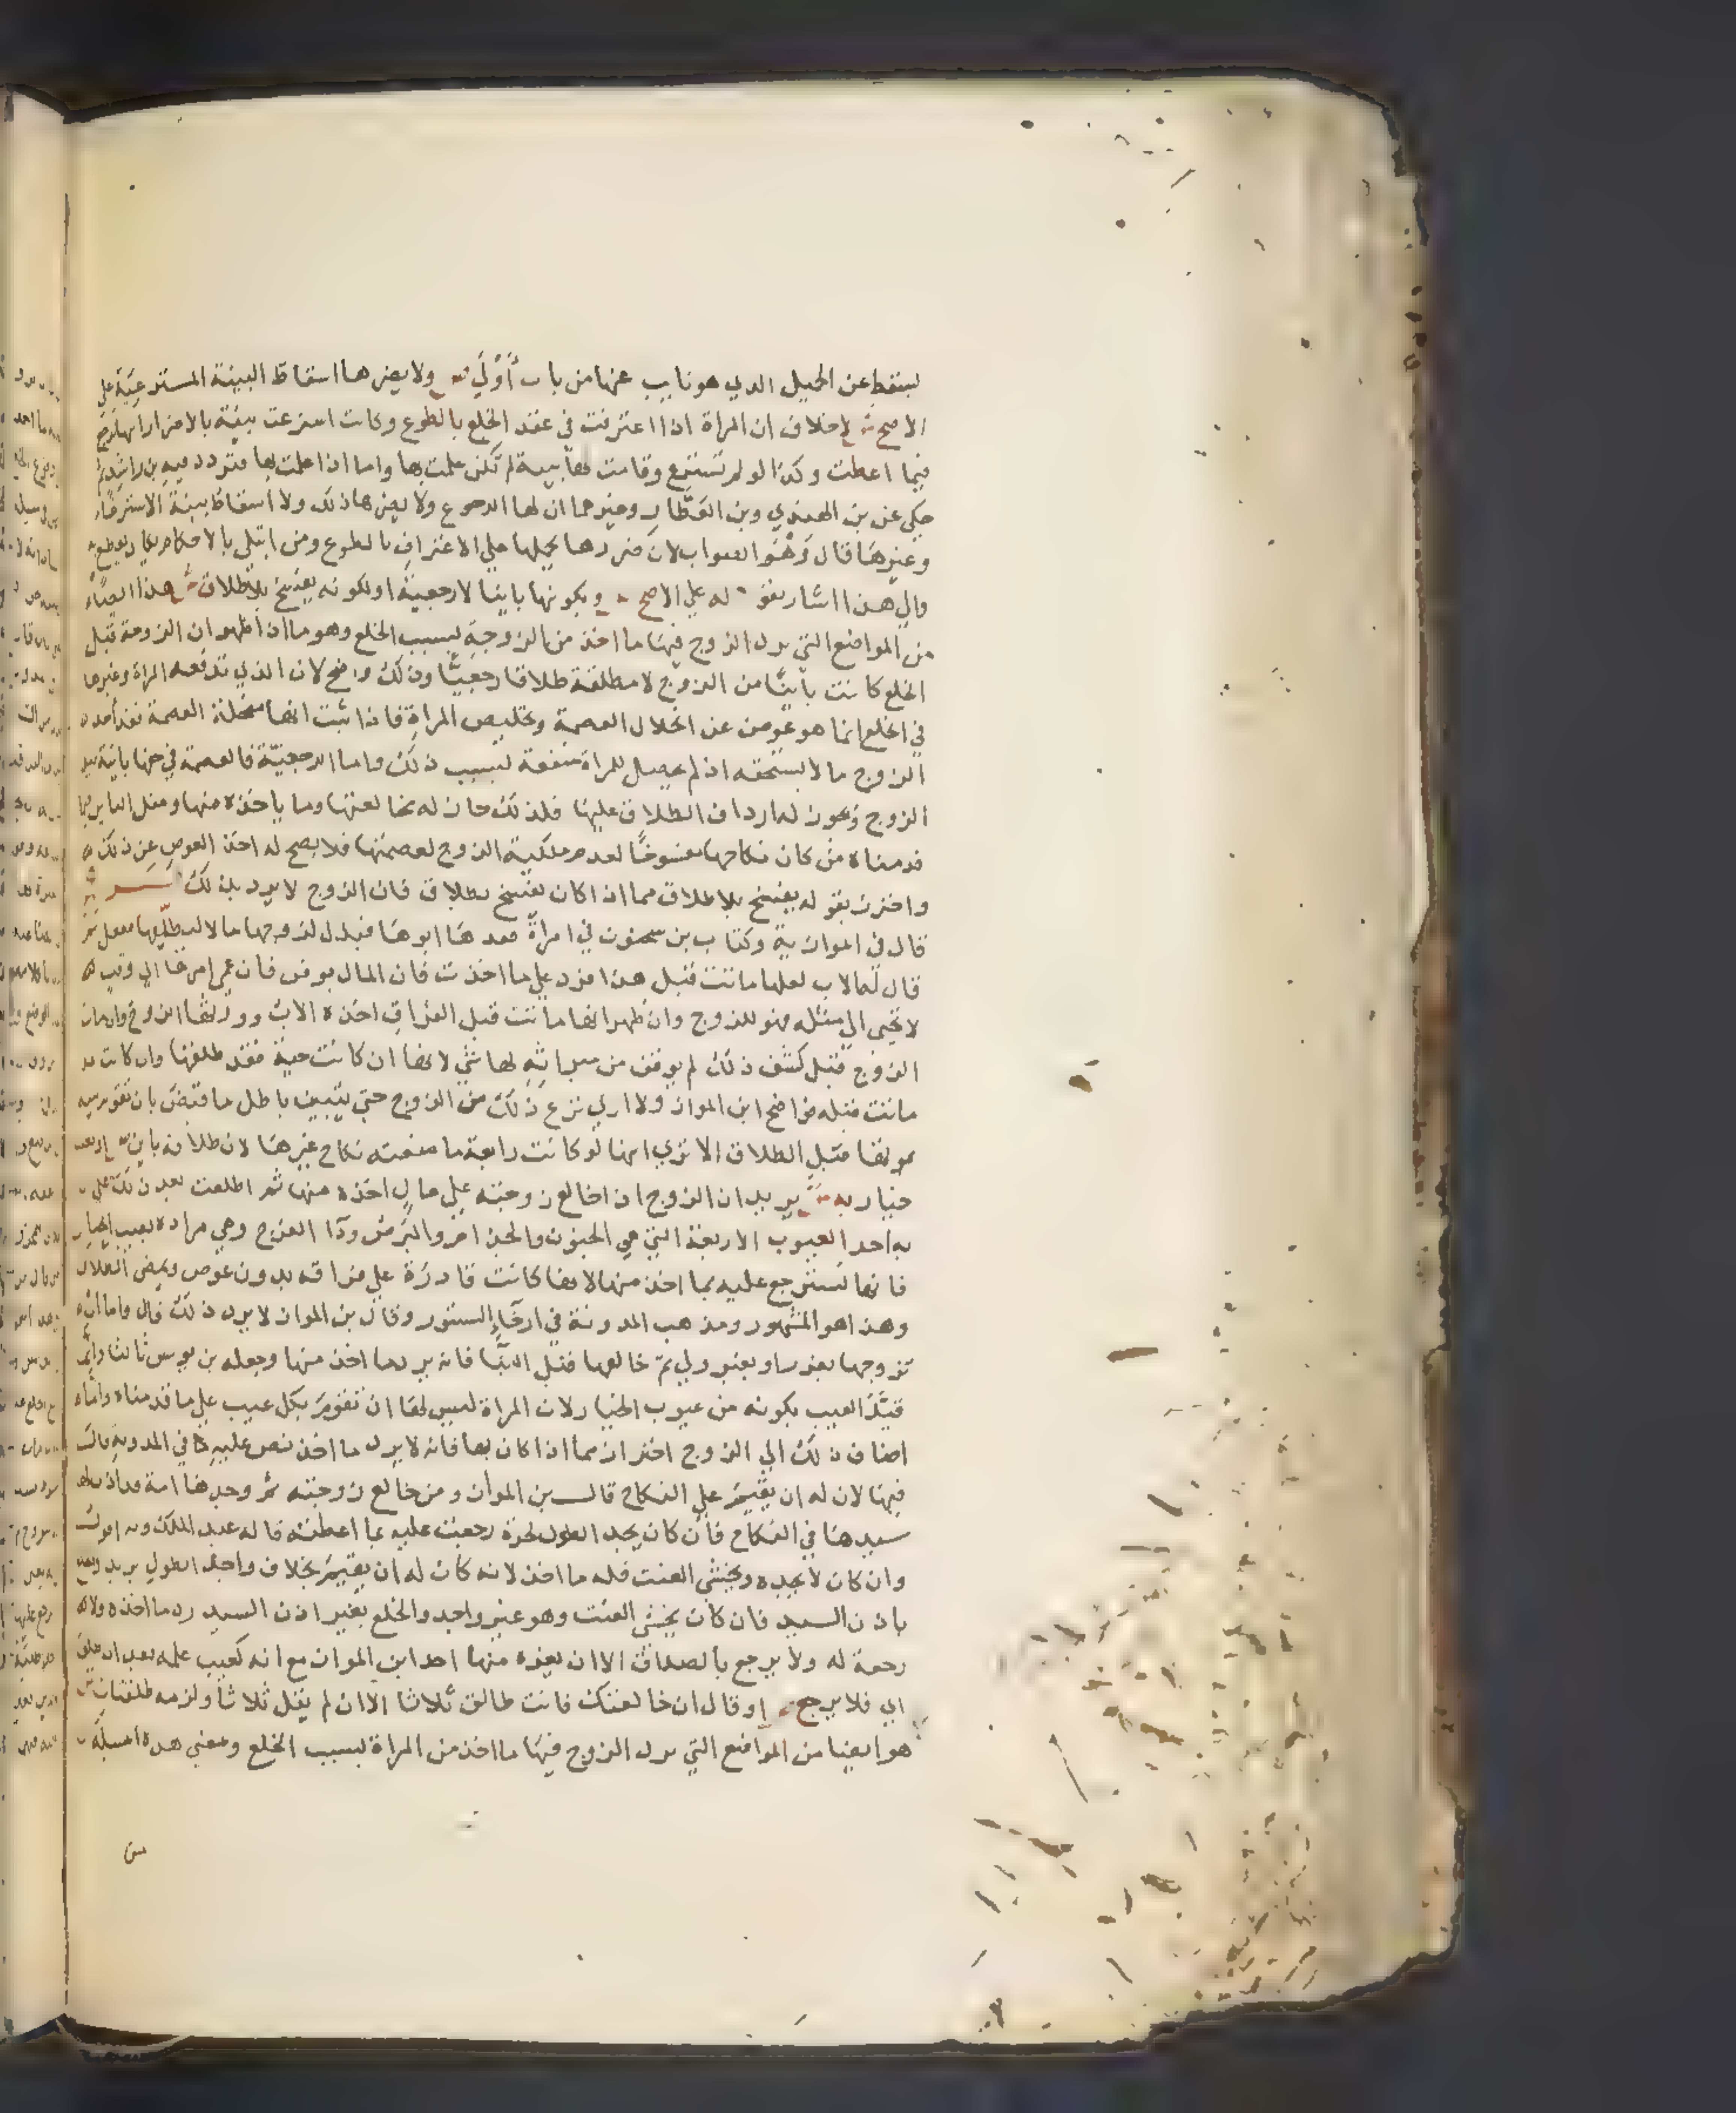 ليسقط عن الحيل الدي هو نايب عنها من باب أَوْلَي ص ولا يضرها اسقاط البينة المسترعية علي
الاصح ش لاخلاف ان المراة اذا اعترفت في عقد الخلع بالطوع وكانت استرعت بينة بالاضرار انها ترجع
فيما اعطت وكذا لو لم تسترع وقامت لها بينة لم تكن علمت بها واما اذا علمت بها فتردد فيه بن راشد ثم
حكي عن بن الهندي وبن العطار وغيرهما ان لها الرجوع ولا يضرها ذلك ولا اسقاط بينة الاسترعاء
وغيرها قال وَهُوَ الصواب لان ضررها يحملها علي الاعتراف بالطوع ومن ابتلي بالاحكام يكاد يقطع به
والي هذا اشار بقوله علي الاصح ص وبكونها باينا لا رجعية او لكونه يفسخ بلا طلاق ش هذا ايضا
من المواضع التي يرد الزوج فيها ما اخذ من الزوجة بسبب الخلع وهو ما اذا ظهر ان الزوجة قبل
الخلع كانت باينًا من الزوج لا مطلقة طلاقا رجعيًا وذلك واضح لان الذي تدفعه المراة وغيرها
في الخلع انما هو عوض عن انحلال العصمة وتخليص المراة فاذا ثبت انها منحلة العصمة فقد اخذ
الزوج ما لا يستحقه اذ لم يحصل للمراة منفعة بسبب ذلك واما الرجعية فالعصمة في حقها باقية بيد
الزوج ويجوز له ارداف الطلاق عليها فلذلك جاز له مخالعتها وما ياخذه منها ومثل الباين فيما
قدمناه من كان نكاحها مفسوخًا لعدم ملكية الزوج لعصمتها فلا يصح له اخذ العوض عن ذلك
واحترز بقوله يفسخ بلا طلاق مما اذا كان يفسخ بطلاق فان الزوج لا يرد بذلك
قال في الموازية وكتاب بن سحنون في امراة فبذل لزوجها مالا ليطلقها ففعل ثم
قال له الاب لعلها ماتت قبل هذا فرد علي ما اخذت فان المال يوقف فان عمي امرها الي وقت
لا تحيى الي مثله فهو للزوج وان ظهر انها ماتت قبل الفراق اخذه الاب وورثها الزوج وان مات
الزوج قبل كشف ذلك لم يوقف من ميراثه لها شي لانها ان كانت حية فقد طلقها وان كانت قد
ماتت قبله ابن المواز ولا اري نزع ذلك من الزوج حتي يتبين باطل ما قبض بان تقوم بينة
بموتها قبل الطلاق الا تري انها لو كانت رابعة ما منعته نكاح غيرها لان طلاقه باين ص
خيار به ش يريد ان الزوج اذا خالع زوجته علي مال اخذه منها ثم اطلعت بعد ذلك علي
به احد العيوب الاربعة التي هي الجنون والجذام والبرص ودآ الفرج وهي مراده بعيب الخيار
فانها تسترجع عليه بما اخذ منها لانها كانت قادرة علي فراقه بدون عوض ويمضي الطلاق
وهذا هو المشهور ومذهب المدونة في ارخآء الستور وقال بن المواز لا يرد ذلك قال واما ان
تزوجها بغرر او بغير ولي ثم خالعها قبل البنا فانه يرد ما اخذ منها وجعله بن يونس ثالثا وانما
قيّد العيب بكونه من عيوب الخيار لان المراة ليس لها ان تقوم بكل عيب علي ما قدمناه وانما
اضاف ذلك الي الزوج احترازا مما اذا كان بها فانه لا يرد ما اخذ نص عليه في المدونة قال
فيها لان له ان يقيم علي النكاح قال بن المواز ومن خالع زوجته ثم وجدها امة قد اذن لها
سيدها في النكاح فان كان يجد الطول لحرة رجعت عليه بما اعطته قاله عبد الملك وبه اقول
وان كان لا يجده ويخشي العنت فله ما اخذ لانه كان له ان يقيم بخلاف واجد الطول يريد
باذن السيد فان كان يخشي العنت وهو غير واجد والخلع بغير اذن السيد رد ما اخذه ولا
رجعة له ولا يرجع بالصداق الا ان يغره منها احد ابن المواز مع انه كعيب علمه بعد ان طلق
اي فلا يرجع ص او قال ان خالعتك فانت طالق ثلاثا الا ان لم يقل ثلاثا ولزمه طلقتان ش
هو ايضا من المواضع التي يرد الزوج فيها ما اخذ من المراة بسبب الخلع ومعني هذه المسيلة